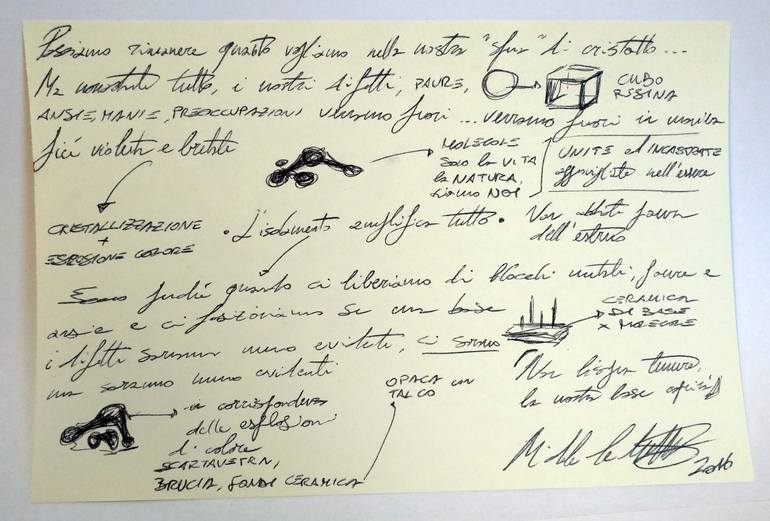 Possiamo rimanere quanto vogliamo nella nostra "sfera" di cristallo...
Ma nonostante tutto, i nostri difetti, PAURE,
ANSIE, MANIE, PREOCCUPAZIONI verranno fuori... verranno fuori in maniera
più violenta e brutale
CUBO
RESINA
MOLECOLE
SOLO la VITA
la NATURA,
siamo NOI
UNITE ed INCASTRATE
aggrovigliate nell'essere
CRISTALLIZZAZIONE
+
ESPLOSIONE COLORE
• L'isolamento amplifica tutto •
Non abbiate paura
dell'estraneo
perché quando ci liberiamo di blocchi mentali, paure e
ansie e ci posizioniamo su una base
i difetti saranno meno evidenti, ci saranno
ma saranno meno evidenti
CERAMICA
DI BASE
X MOLECOLE
Non bisogna temere,
la nostra base
in corrispondenza
delle esplosioni
di colore
SCARTAVETRA,
BRUCIA, FONDI CERAMICA
OPACA con
TALCO
2016